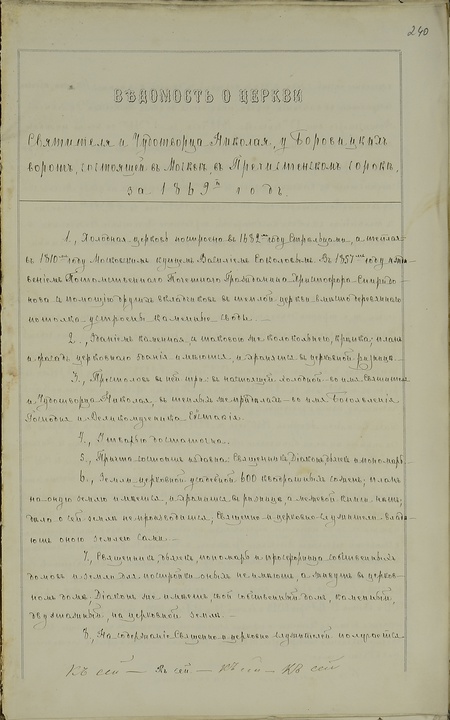 240
ВѢДОМОСТЬ О ЦЕРКВИ
Святителя и Чудотворца Николая, у Боровицкихъ
воротъ, состоящей въ Москвѣ, въ Пречистенскомъ сорокѣ,
за 1869й годъ.
1., Холодная церковь построена въ 1682мъ году Стрѣльцами, а теплая
въ 1810мъ году Московскимъ купцемъ Василіемъ Соколовымъ. Въ 1857мъ году
Потомственнаго Почетнаго Гражданина Христофора Спиридо-
нова и помощію другихъ вкладчиковъ въ теплой церкви вмѣсто деревяннаго
потолка устроены каменные своды.
2., Зданіемъ каменная, и таковою же колокольнею, крѣпка; планъ
и фасадъ церковнаго зданія имѣются, и хранятся въ церковной ризницѣ.
3., Престоловъ въ ней три: въ настоящей холодной во имя Святителя
и Чудотворца Николая, въ теплыхъ же придѣлахъ во имя Богоявленія
Господня и Великомученика Евстафія.
4., Утварію достаточна.
5., Причта состоитъ издавна: Священникъ, Діаконъ, дьячекъ и пономарь.
6., Земли церковной усадебной 600 квадратныхъ саженъ; планъ
на оную землю имѣется, и хранится въ ризницѣ, а межевой книги
дѣла о сей землѣ не производится, Священно- и церковно-служители владѣ-
ютъ оною землею сами.
7., Священникъ, дьячекъ, пономарь и просфорница собственныхъ
домовъ и земли для постройки оныхъ не имѣютъ, а живутъ въ церков-
номъ домѣ, Діаконъ же имѣетъ свой собственный домъ, каменный,
двухэтажный, на церковной землѣ.
8., На содержаніе Священно- и церковно-служителей получается
Къ сей — Къ сей — Къ сей — Къ сей